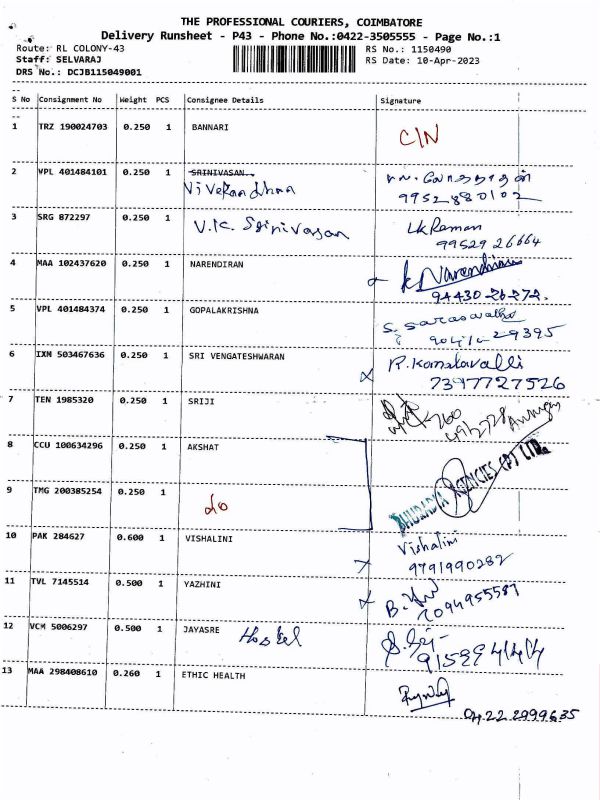 THE PROFESSIONAL COURIERS, COIMBATORE
Delivery Runsheet - P43 - Phone No.:0422-3505555 - Page No.:1
Route: RL COLONY-43 RS No.: 1150490
Staff: SELVARAJ RS Date: 10-Apr-2023
DRS No.: DCJB115049001
S No Consignment No Weight PCS Consignee Details Signature
1 TRZ 190024703 0.250 1 BANNARI C/N
2 VPL 401484101 0.250 1 SRINIVASAN
Vivekandhan 9952880102
3 SRG 872297 0.250 1 V.K. Srinivasan LK Raman
99529 26664
4 MAA 102437620 0.250 1 NARENDIRAN K. Narendhiran
94430 26272.
5 VPL 401484374 0.250 1 GOPALAKRISHNA S. Saraswathi
90414-29395
6 IXM 503467636 0.250 1 SRI VENGATESHWARAN R. Kamalavalli
7397727526
7 TEN 1985320 0.250 1 SRIJI
8 CCU 100634296 0.250 1 AKSHAT AGENCIES (P) LTD.
9 TMG 200385254 0.250 1 do
10 PAK 284627 0.600 1 VISHALINI Vishalini
9791990282
11 TVL 7145514 0.500 1 YAZHINI B.
7094955587
12 VCM 5006297 0.500 1 JAYASRE Hostel
13 MAA 298408610 0.260 1 ETHIC HEALTH
0422 2999635